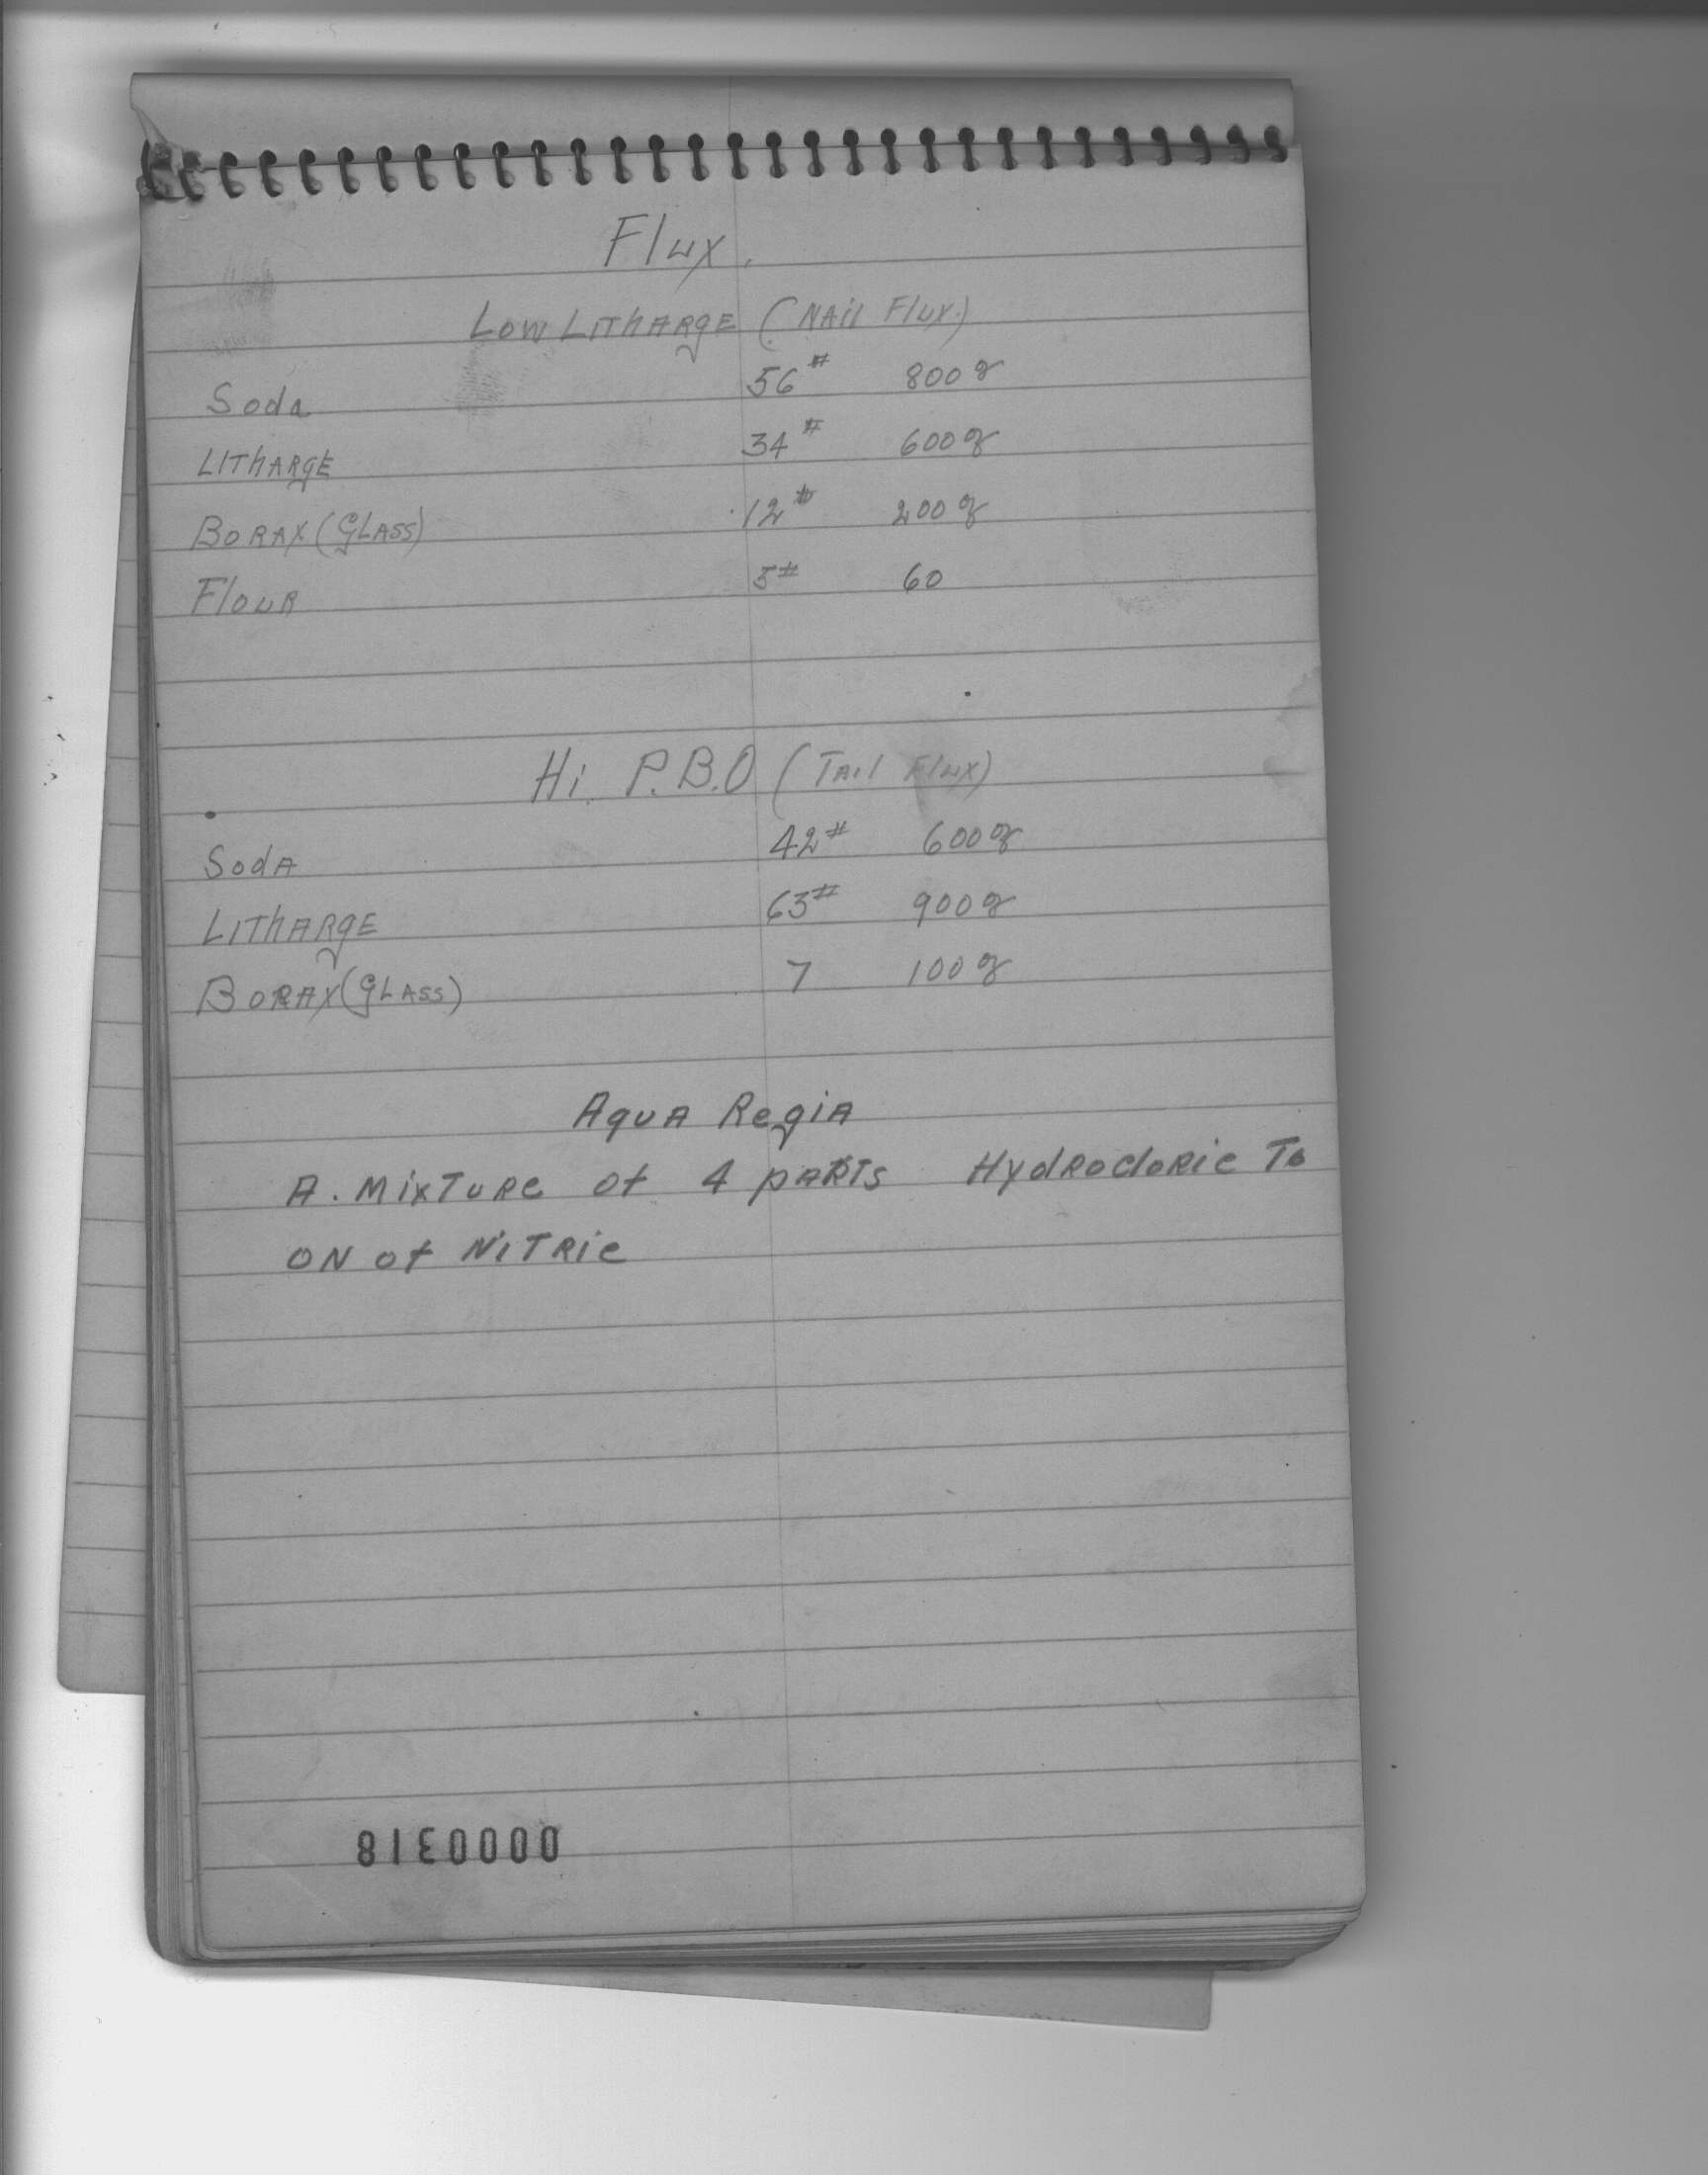 Flux.
Low Litharge (Nail Flux.)
Soda 56# 800g
Litharge 34# 600g
Borax (Glass) 12# 200g
Flour 5# 60
Hi P.B.O (Tail Flux)
Soda 42# 600g
Litharge 63# 900g
Borax (Glass) 7 100g
Aqua Regia
A. Mixture of 4 parts Hydrocloric To
on of Nitric
0000318